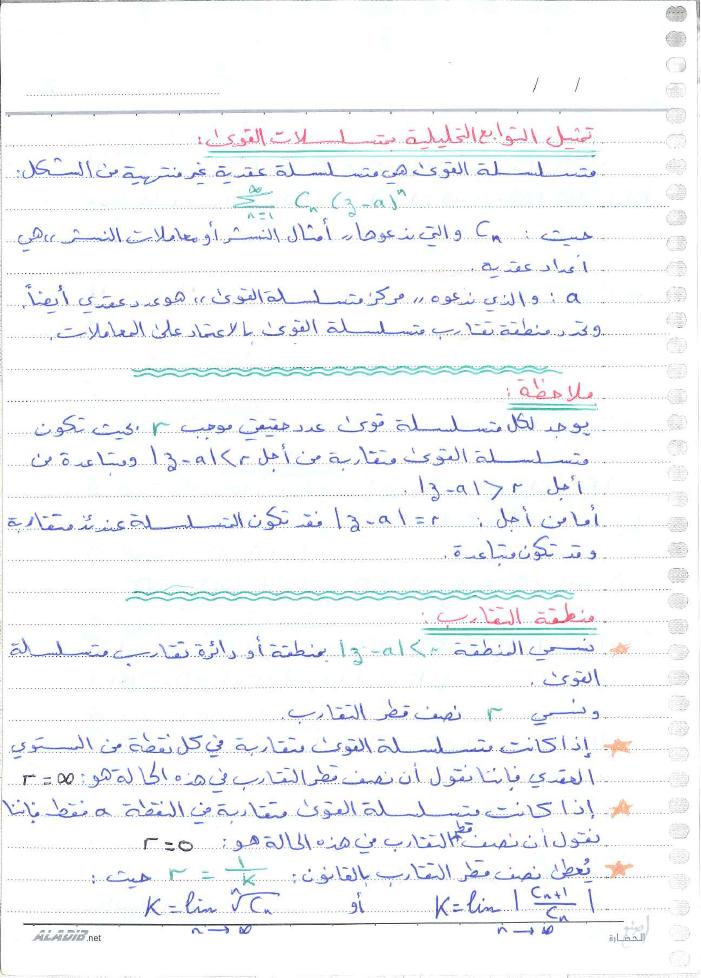 / /
تمثيل التوابع التحليلية بمتسلسلات القوى:
متسلسلة القوى هي متسلسلة عقدية غير منتهية من الشكل:
∞
∑ Cₙ (z-a)ⁿ
n=1
حيث: Cₙ والتي ندعوها,, أمثال النشر أو معاملات النشر ,, هي
أعداد عقدية.
a : والذي ندعوه ,, مركز متسلسلة القوى ,, هو عدد عقدي أيضاً.
وتحدد منطقة تقارب متسلسلة القوى بالاعتماد على المعاملات.
ملاحظة:
يوجد لكل متسلسلة قوى عدد حقيقي موجب r بحيث تكون
متسلسلة القوى متقاربة من أجل |z-a|<r ومتباعدة من
أجل |z-a|>r.
أما من أجل: |z-a|=r فقد تكون المتسلسلة عندئذ متقاربة
وقد تكون متباعدة.
منطقة التقارب:
نسمي المنطقة |z-a|<r بمنطقة أو دائرة تقارب متسلسلة
القوى.
ونسمي r نصف قطر التقارب.
إذا كانت متسلسلة القوى متقاربة في كل نقطة من المستوي
العقدي فإننا نقول أن نصف قطر التقارب في هذه الحالة هو: r=∞
إذا كانت متسلسلة القوى متقاربة في النقطة a فقط فإننا
نقول أن نصف قطر التقارب في هذه الحالة هو: r=0
يُعطى نصف قطر التقارب بالقانون: r = 1/K حيث:
K=lim |Cₙ₊₁/Cₙ| أو K=lim ⁿ√Cₙ
n→∞ n→∞
ALADIB.net
الحضارة